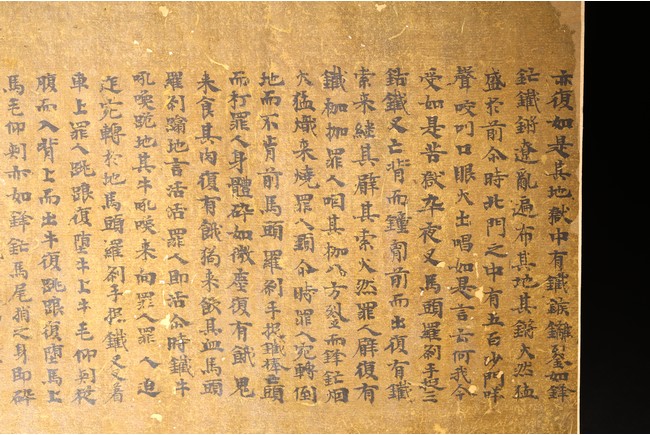 亦復如是其地獄中有鐵如鋒
鋩鐵鏘遼亂遍布其地其鏘火然猛
盛於前尒時北門之中有五百沙門咩
聲咬叩口眼火出唱如是言云何我今
受如是苦獄卒夜叉馬頭羅剎手捉三
鈷鐵叉亡背而鍾匈前而出復有鐵
索來縺其辟其索火然罪人辟復有
鐵枷枷罪人咽其枷八方鋒鋩烟
火猛熾來燒罪人頭尒時罪人宛轉倒
地而不肯前馬頭羅剎手捉鐵棒頭
而打罪人身體碎如微塵復有餓鬼
來食其肉復有餓狗來飲其血馬頭
羅剎地言活活罪人即活尒時鐵牛
吼喚跑地其牛吼喚來向罪人罪人迫
迮宛轉於地馬頭羅剎手捉鐵叉叉着
車上罪人跳踉復墮牛上牛毛仰刺從
腹而入背上而出牛復跳踉復墮馬上
馬毛仰刺亦如鋒鋩馬尾捎之身即碎